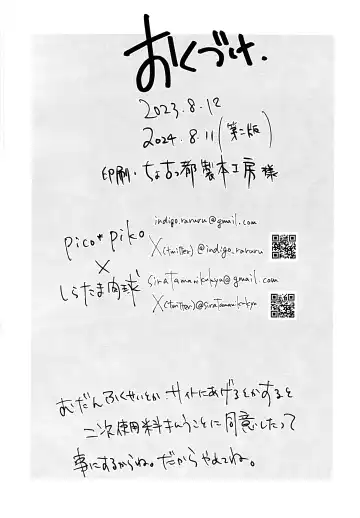 おくづけ.
2023.8.12
2024.8.11(第二版)
印刷・ちょまっ都製本工房様
pico*piko
indigo.raruru@gmail.com
X(twitter)@indigo_raruru
×
しらたま肉球
siratamanikukyu@gmail.com
X(twitter)@siratamanikukyu
むだんふくせいとかサイトにあげるとかすると
二次使用料はらうことに同意したって
事にするからね。だからやめてね。